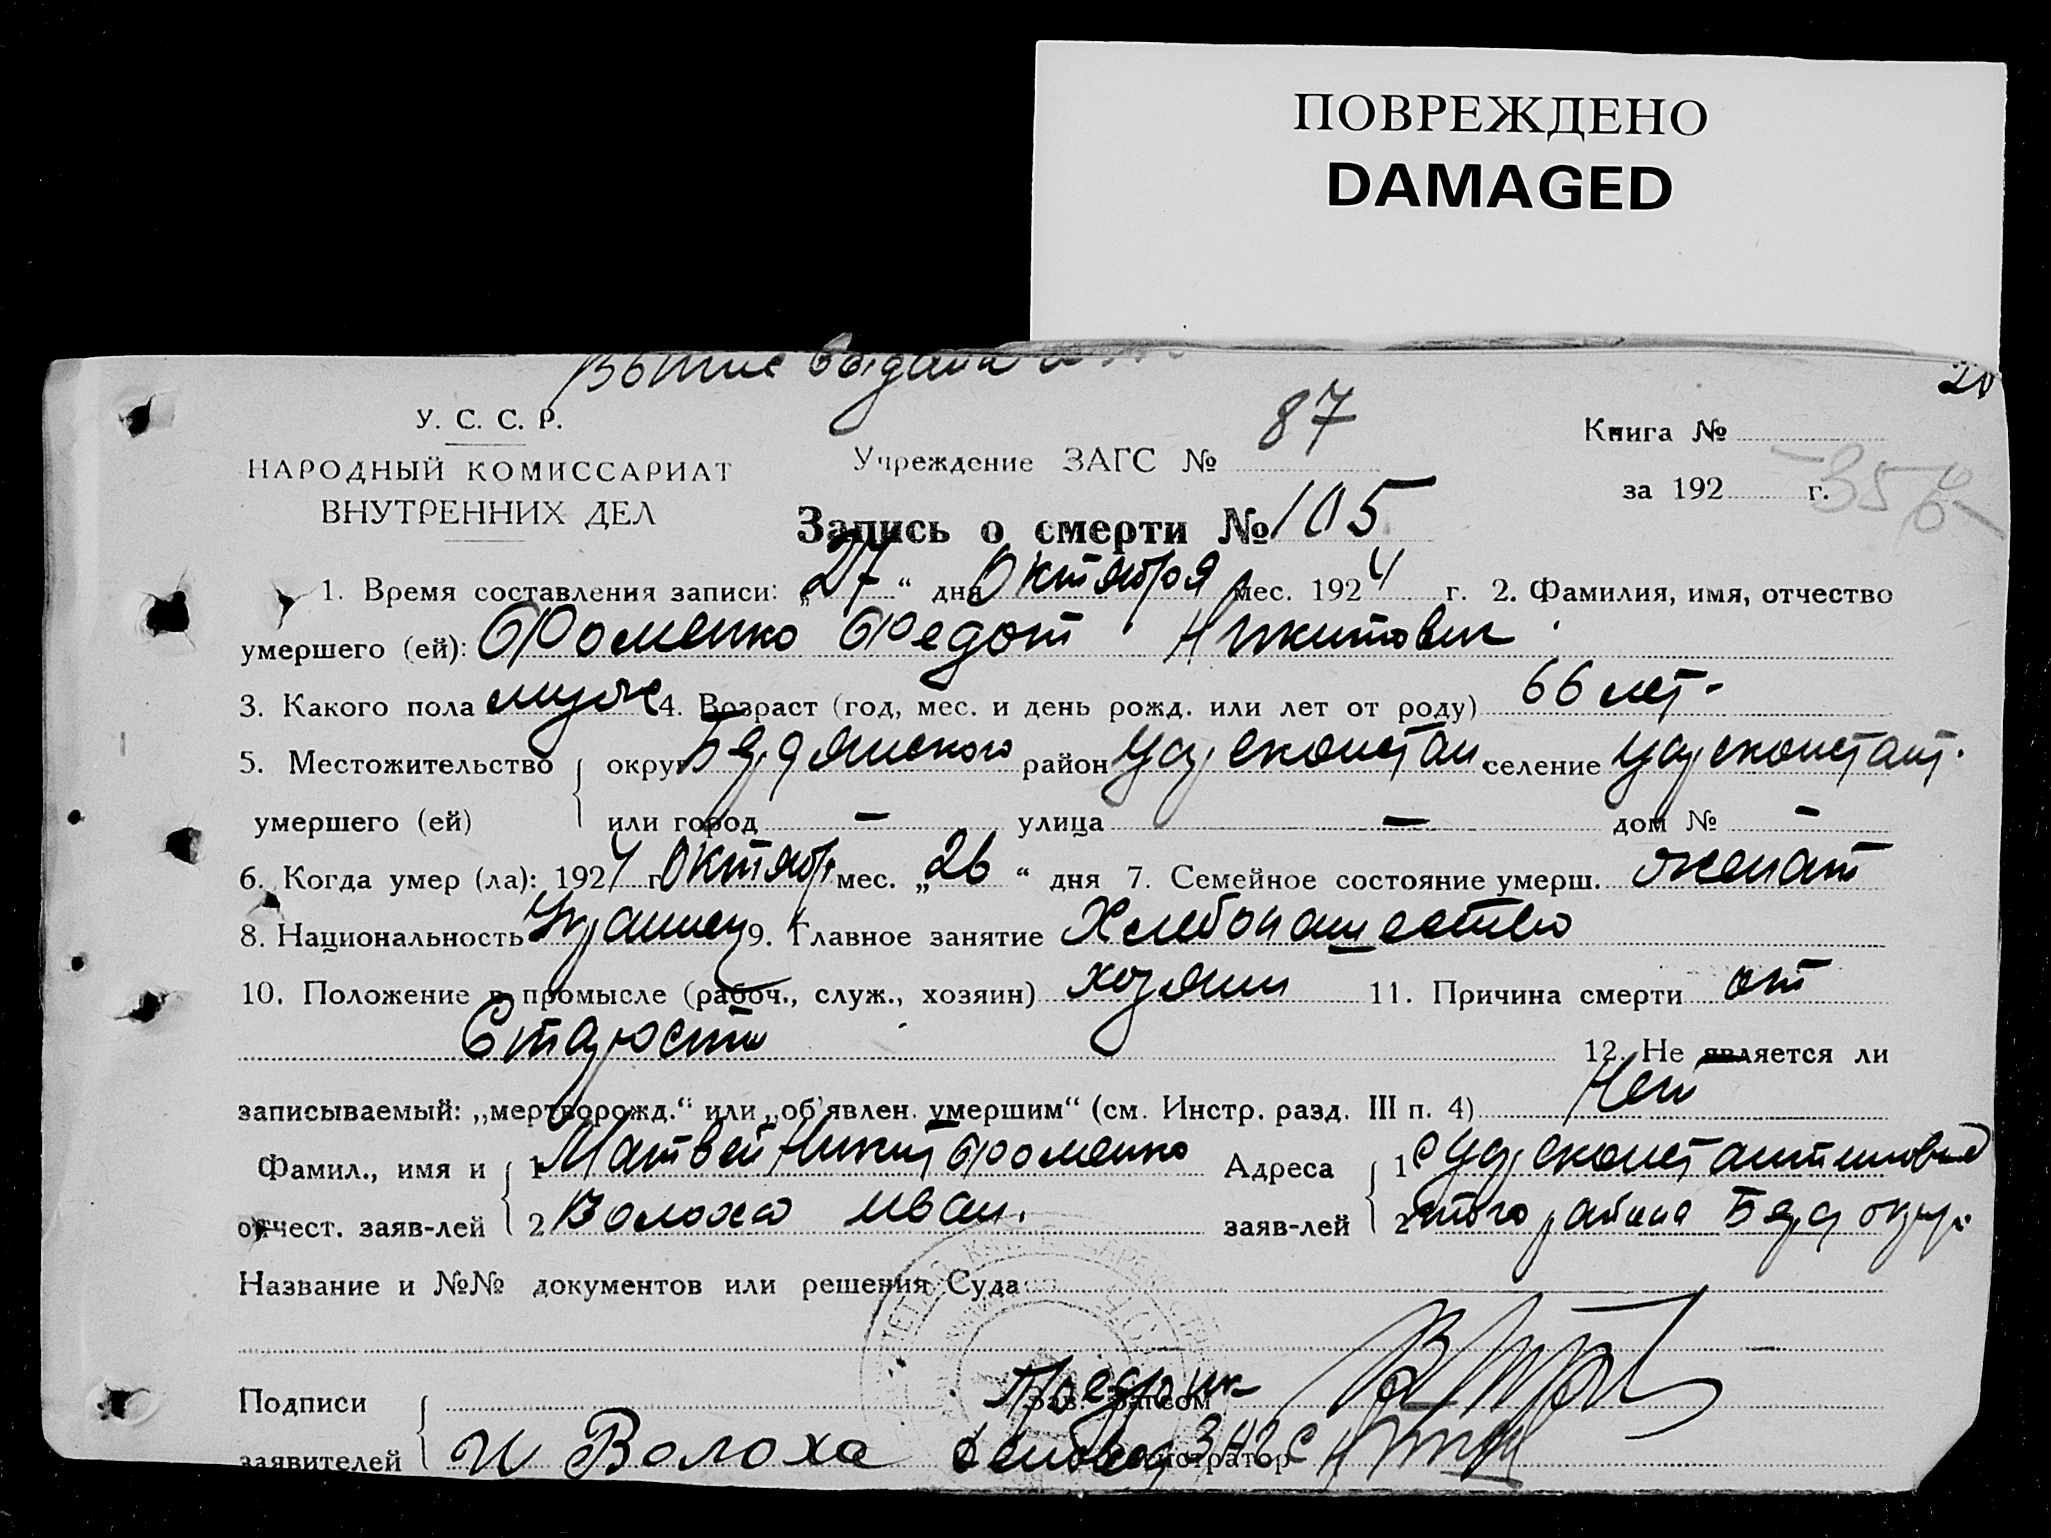 ПОВРЕЖДЕНО
DAMAGED
20
У. С. С. Р.
НАРОДНЫЙ КОМИССАРИАТ
ВНУТРЕННИХ ДЕЛ
Учреждение ЗАГС № 87
Книга №
за 192 г.
Запись о смерти № 105
1. Время составления записи: „27“ дня Октября мес. 1924 г. 2. Фамилия, имя, отчество
умершего (ей): Фоменко Федот Никитович
3. Какого пола муж 4. Возраст (год, мес. и день рожд. или лет от роду) 66 лет
5. Местожительство округ Бердянского район Цареконстан. селение Цареконстант.
умершего (ей) или город — улица — дом № —
6. Когда умер (ла): 1924 г. Октябр. мес. „26“ дня 7. Семейное состояние умерш. женат
8. Национальность Украинец 9. Главное занятие Хлебопашество
10. Положение в промысле (рабоч., служ., хозяин) хозяин 11. Причина смерти от
Старости
12. Не является ли
записываемый: „мертворожд.“ или „об'явлен. умершим“ (см. Инстр. разд. III п. 4) Нет
Фамил., имя и 1 Матвей Никит Фоменко Адреса 1 с Цареконстантиновка
отчест. заяв-лей 2 Волоха иван. заяв-лей 2 того района Берд округ.
Название и №№ документов или решения Суда
Подписи Зав. Загсом
заявителей И Волоха